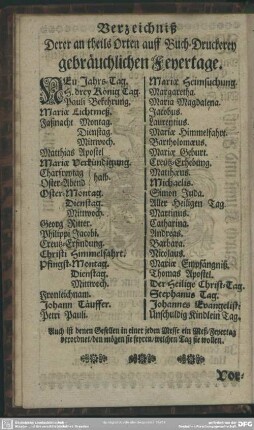 Verzeichniß
Derer an theils Orten auff Buch-Druckerey
gebräuchlichen Feyertage.
NEu Jahrs-Tag.
H. drey König Tag.
Pauli Bekehrung.
Mariæ Lichtmeß.
Faßnacht Montag.
Dienstag.
Mittwoch.
Matthias Apostel.
Mariæ Verkündigung.
Charfreytag
Oster-Abend } halb.
Oster-Montag.
Dienstag.
Mittwoch.
Georg Ritter.
Philippi Jacobi.
Creutz-Erfindung.
Christi Himmelfahrt.
Pfingst-Montag.
Dienstag.
Mittwoch.
Fronleichnam.
Johann Täuffer.
Petri Pauli.
Mariæ Heimsuchung.
Margaretha.
Maria Magdalena.
Jacobus.
Laurentius.
Mariæ Himmelfahrt.
Bartholomæus.
Mariæ Geburt.
Creutz-Erhebung.
Matthæus.
Michaelis.
Simon Juda.
Aller Heiligen Tag
Martinus.
Catharina.
Andreas.
Barbara.
Nicolaus.
Mariæ Empfängniß.
Thomas Apostel.
Der Heilige Christ-Tag.
Stephanus Tag.
Johannes Evangelist.
Unschuldig Kindlein Tag.
Auch ist denen Gesellen in einer jeden Messe ein Meß-Feyertag
verordnet/den mögen sie feyren/welchen Tag sie wollen.
Vor-